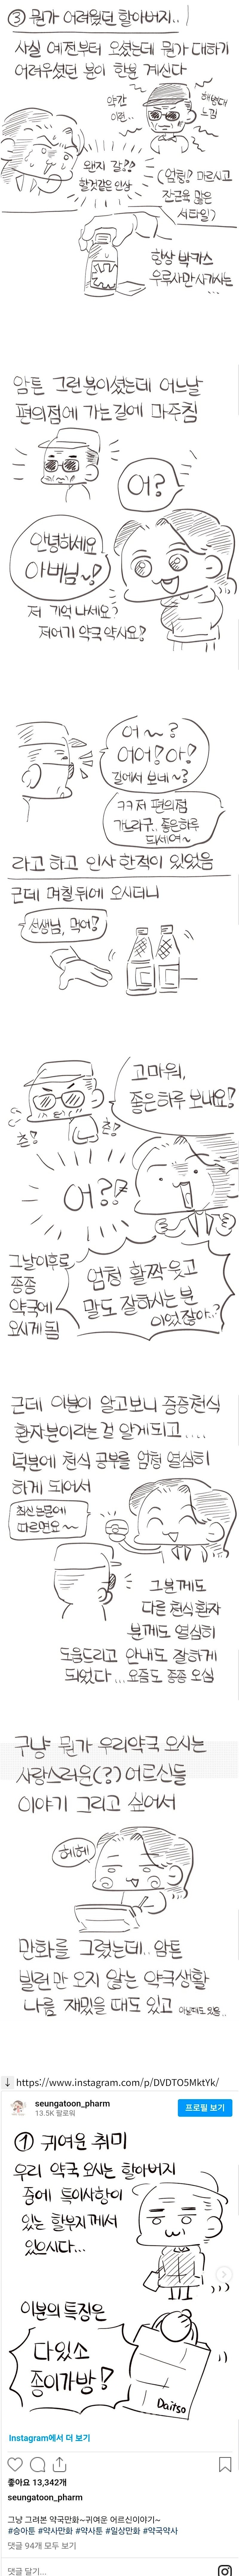 ③ 뭔가 어려웠던 할아버지..
사실 예전부터 오셨는데 뭔가 대하기
어려우셨던 분이 한분 계신다
약간
이런..
해병대
느낌
왠지 강??
할것같은 인상
(엄청 마르시고
잔근육 많은
스타일)
항상 박카스
우루사만 사가시는...
암튼 그런분이셨는데 어느날
편의점에 가는길에 마주침
어?
안녕하세요
아버님~!
저 기억나세요?
저어기 약국 약사요!
어~?
어어! 아!
길에서 보네~?
ㅋㅋ 저 편의점
가느라구.. 좋은하루
되세여~
라고 하고 인사 한적이 있었음
근데 며칠뒤에 오시더니
선생님, 먹어!
고마워,
좋은하루 보내요!
츤!
츤!
어??
그날이후로
종종
약국에
오시게됨
엄청 활짝 웃고
말도 잘하시는 분
이었잖아..?
근데 이분이 알고보니 중증천식
환자분이라는 걸 알게되고....
덕분에 천식 공부를 엄청 열심히
하게 되어서
최신 논문에
따르면요~~
그분께도
다른 천식환자
분께도 열심히
도움드리고 안내도 잘하게
되었다... 요즘도 종종 오심
구냥 뭔가 우리약국 오시는
사랑스러운(?) 어르신들
이야기 그리고 싶어서
히헤
만화를 그렸는데.. 암튼
빌런만 오지 않는 약국생활
나름 재밌을 때도 있고 아닐때도 있음..
↓ https://www.instagram.com/p/DVDTO5MktYk/
seungatoon_pharm
13.5K 팔로워
프로필 보기
① 귀여운 취미
우리 약국 오시는 할아버지
중에 특이사항이
있는 할부지께서
있으시다...
이분의 특징은
다있소
종이가방!
Daitso
Instagram에서 더 보기
좋아요 13,342개
seungatoon_pharm
그냥 그려본 약국만화~귀여운 어르신이야기~
#승아툰 #약사만화 #약사툰 #일상만화 #약국약사
댓글 94개 모두 보기
댓글 달기...